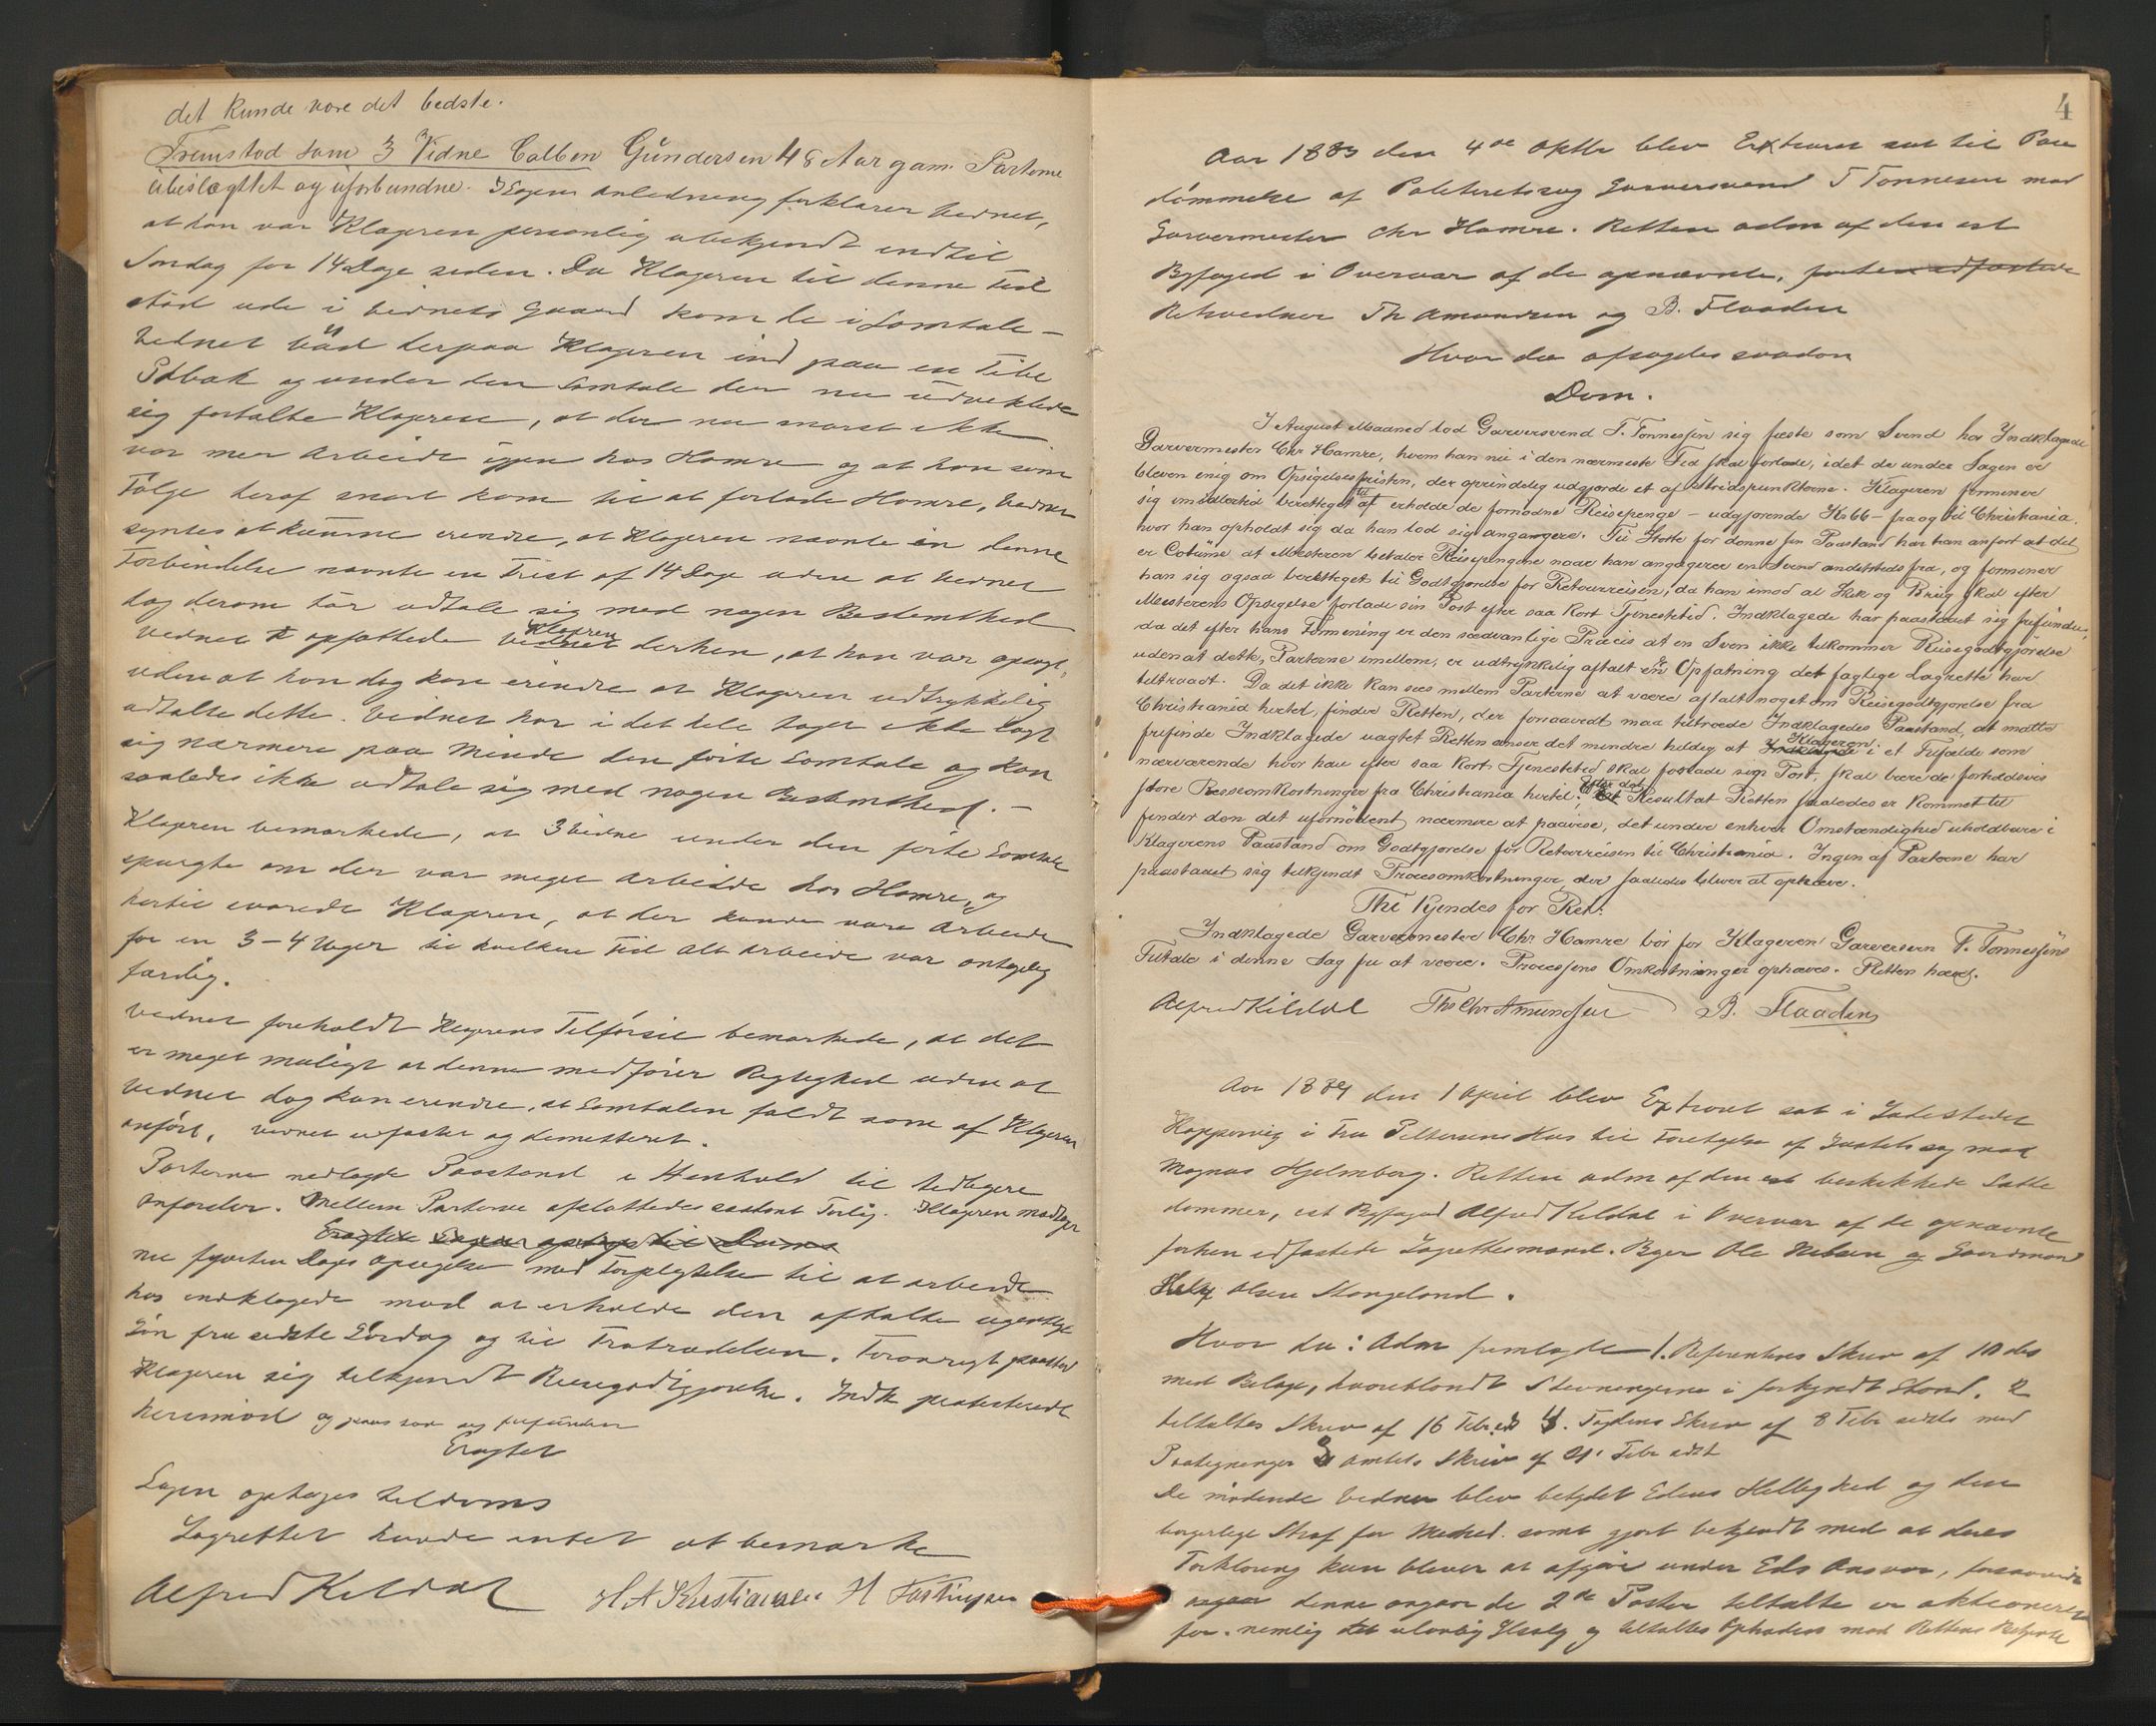 det kunde være det bedste.
Fremstod som 3 Vidne Colben Gundersen 48 Aar gam. Parterne
ubeslægttet og uforbundne. I Sagens anledning forklarer Vidnet,
at han var Klageren personlig ubekjendt indtil
Søndag for 14 Dage siden. Da Klageren til denne tid
stod ude i Vidnets Gaard kom de i Samtale –
Vidnet bad derpaa Klageren ind paa en Pibe
Tobak og under den Samtale der nu udviklede
sig fortalte Klageren, at der nu snart ikke
var mer Arbeide igjen hos Hamre og at han som
Følge heraf snart kom til at forlade Hamre, Vidnet
syntes at kunne erindre, at Klageren nævnte in denne
Forbindelse nævnte en Frist af 14 Dage uden at Vidnet
dog derom tør udtale sig med nogen Bestemthed
Vidnet opfattede Klageren derhen, at han var opsagt,
uden at han dog kan erindre at Klageren udtrykkelig
udtalte dette. Vidnet har i det hele taget ikke lagt
sig nærmere paa Minde den førte Samtale og kan
saaledes ikke udtale sig med nogen Bestemthed. –
Klageren bemærkede, at 3 Vidne under den førte Samtale
spurgte om der var meget Arbeide hos Hamre, og
hertil svarede Klageren, at der kunde være Arbeide
for en 3–4 Uger til hvilken tid alt Arbeide var
færdig.
Vidnet foreholdt Klagerens Tilførsel bemærkede, at det
er meget muligt at denne medfører Rigtighed uden at
Vidnet dog kan erindre, at Samtalen faldt som af Klageren
anført. Vidnet edfæstet og demitteret.
Parterne nedlagde Paastand i Henhold til tidligere
anførsler. Mellem Parterne afsluttedes saadant Forlig. Klageren modtager
Eragtet Sagen optages til Doms
nu fjorten Dages Opsigelse med Forpligtelse til at arbeide
hos indklagede mod at erholde den aftalte ugentlige
Løn fra sidste Lørdag og til Fratrædelsen. Forøvrigt paastod
Klageren sig tilkjendt Reisegodtgjørelse. Indk protesterede
herimod og paastod sig frifunden
Eragtet
Sagen optages tildoms
Lagrettet havde intet at bemærke
Alfred Kildal H A Kristiansen H
4
Aar 1883 den 4de Oktbr blev Extraret sat til Paa
dømmelse af Politiretssag Garversvend T Tønnesen mod
Garvermester Chr Hamre. Retten adm af den cst
Byfoged i Overvær af de opnævnte, forhen edfæstede
Retsvidner Th Amundsen og B. Flaaden
Hvor da afsagdes saadan
Dom.
I August Maaned lod Garversvend T. Tønnessen sig fæste som Svend hos Indklagede
Garvermester Chr Hamre, hvem han nu i den nærmeste Tid skal forlade, idet de under Sagen er
bleven enig om Opsigelsesfristen, der oprindelig udgjorde et af Stridspunkterne. Klageren formener
sig imidlertid berettiget til at erholde de fornødne Reisepenge – udgjørende Kr 66 – fra og til Christiania.
hvor han opholdt sig da han lod sig angangere. Til Støtte for denne sin Paastand har han anført at det
er Cotume at Mesteren betaler Reisepengene naar han angagerer en Svend andetstedsfra, og formener
han sig ogsaa berettiget til Godtgjørelse for Retourreisen, da han imod al Skik og Brug skal efter
Mesterens Opsigelse forlade sin Post efter saa kort Tjenestetid. Indklagede har paastaaet sig frifunden,
da det efter hans Formening er den sædvanlige Praxis at en Sven ikke tilkommer Reisegodtgjørelse
uden at dette, Parterne imellem, er udtrykkelig aftalt en Opfatning det faglige Lagrette har
tiltraadt. Da det ikke kan sees mellem Parterne at være aftalt noget om Reisegodtgjørelse fra
Christiania hertil, finder Retten, der forsaavidt maa tiltræde Indklagedes Paastand, at maatte
frifinde Indklagede uagtet Retten anser det mindre heldig at Klageren i et Tilfælde som
nærværende hvor han efter saa kort Tjenestetid skal forlade sin Post, skal bære de forholdsvis
store Reiseomkostninger fra Christiania hertil. Efter det Resultat Retten saaledes er kommet til
finder den det ufornødent nærmere at paavise, det under enhver Omstændighed uholdbare i
Klagerens Paastand om Godtgjørelse for Retourreisen til Christiania. Ingen af Parterne har
paastaaet sig tilkjendt Procesomkostninger, der saaledes bliver at ophæve.
Thi Kjendes for Ret:
Indklagede Garvermester Chr. Hamre bør for Klageren Garversven T. Tønnessens
Tiltale i denne Sag fri at være. Processens Omkostninger ophæves. Retten hævet.
Alfred Kildal Ths Chr Amundsen B. Flaaden
Aar 1884 den 1 April blev Extraret sat i Ladestedet
Kopperviig i Fru Pettersens Hus til Foretagelse af Justitssag mod
Magnus Hjelmberg. Retten adm af den beskikkede Sætte
dommer, cst Byfoged Alfred Kildal i Overvær af de opnævnte
forhen edfæstede Lagrettesmænd. Byer Ole Nielsen og Gaardmand
Helge Olsen Stangeland.
Hvor da: Adm fremlagde 1. Referentens Skriv af 10 ds
med Bilage, hvoriblandt Stevningerne i forkyndt Stand. 2
tiltaltes Skriv af 16 Febr. 4. Fogdens Skriv af 8 Febr sidst med
Paategninger 3 Amtets Skriv af Febr sidst
De mødende Vidner blev betydet Edens Hellighed og den
borgerlige Straf for Mened. samt gjort bekjendt med at deres
Forklaring kun bliver at afgive under Eds Ansvar, forsaavidt
denne angaar de 2de Poster tiltalte er aktioneret
for. nemlig ulovlig Ilsalg og tiltaltes Ophævelse mod Rettens Betjente